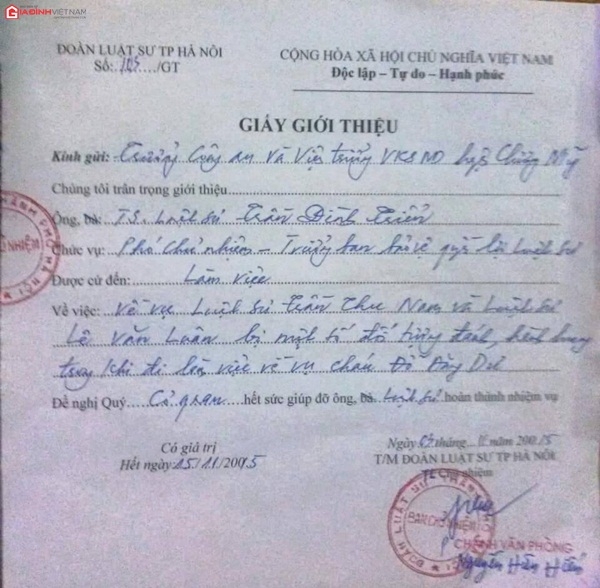 GIADINHVIETNAM
ĐOÀN LUẬT SƯ TP HÀ NỘI
CỘNG HÒA XÃ HỘI CHỦ NGHĨA VIỆT NAM
Số: 103..../GT
Độc lập – Tự do – Hạnh phúc
GIẤY GIỚI THIỆU
Kính gửi: Trưởng Công an và Viện trưởng VKSND huyện Chương Mỹ
Chúng tôi trân trọng giới thiệu
Ông, bà: T.S. Luật sư Trần Đình Triển
Chức vụ: Phó chủ nhiệm – Trưởng ban bảo vệ quyền lợi Luật sư
Được cử đến: Làm việc
Về việc: Về vụ Luật sư Trần Thu Nam và Luật sư
Lê Văn Luân bị một số đối tượng đánh, hành hung
trong khi đi làm việc về vụ cháu Đỗ Đăng Dư
Đề nghị Quý Cơ quan hết sức giúp đỡ ông, bà Luật sư hoàn thành nhiệm vụ
Có giá trị
Hết ngày: 15/11/2005
Ngày 03 tháng 11 năm 20015
T/M ĐOÀN LUẬT SƯ TP HÀ NỘI
Chủ nhiệm
BAN CHỦ NHIỆM
CHÁNH VĂN PHÒNG
Nguyễn Hiền